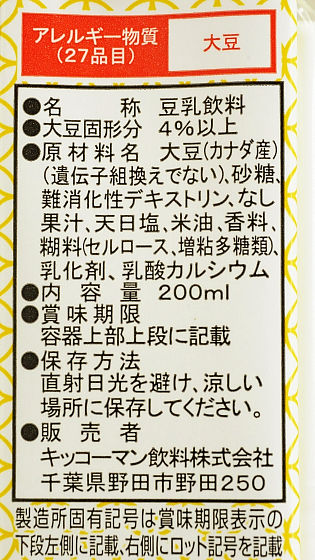 アレルギー物質
(27品目)
大豆
●名　　称 豆乳飲料
●大豆固形分 4%以上
●原材料名 大豆(カナダ産)
(遺伝子組換えでない)、砂糖、
難消化性デキストリン、なし
果汁、天日塩、米油、香料、
糊料(セルロース、増粘多糖類)、
乳化剤、乳酸カルシウム
●内 容 量 200ml
●賞味期限
容器上部上段に記載
●保存方法
直射日光を避け、涼しい
場所に保存してください。
●販 売 者
キッコーマン飲料株式会社
千葉県野田市野田250
製造所固有記号は賞味期限表示の
下段左側に記載、右側にロット記号を記載